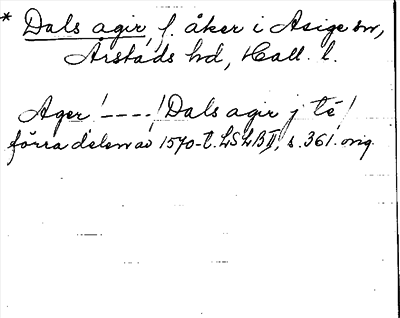 * Dals agir, f. åker i Asige sn,
Årstads hd, Hall. l.
Ager!----! Dals agir j té!
förra delen av 1570-t. LSLBII, s. 361. orig.